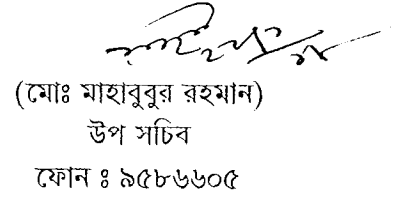 (মোঃ মাহাবুবুর রহমান)
উপ সচিব
ফোন ঃ ৯৫৮৬৬০৫